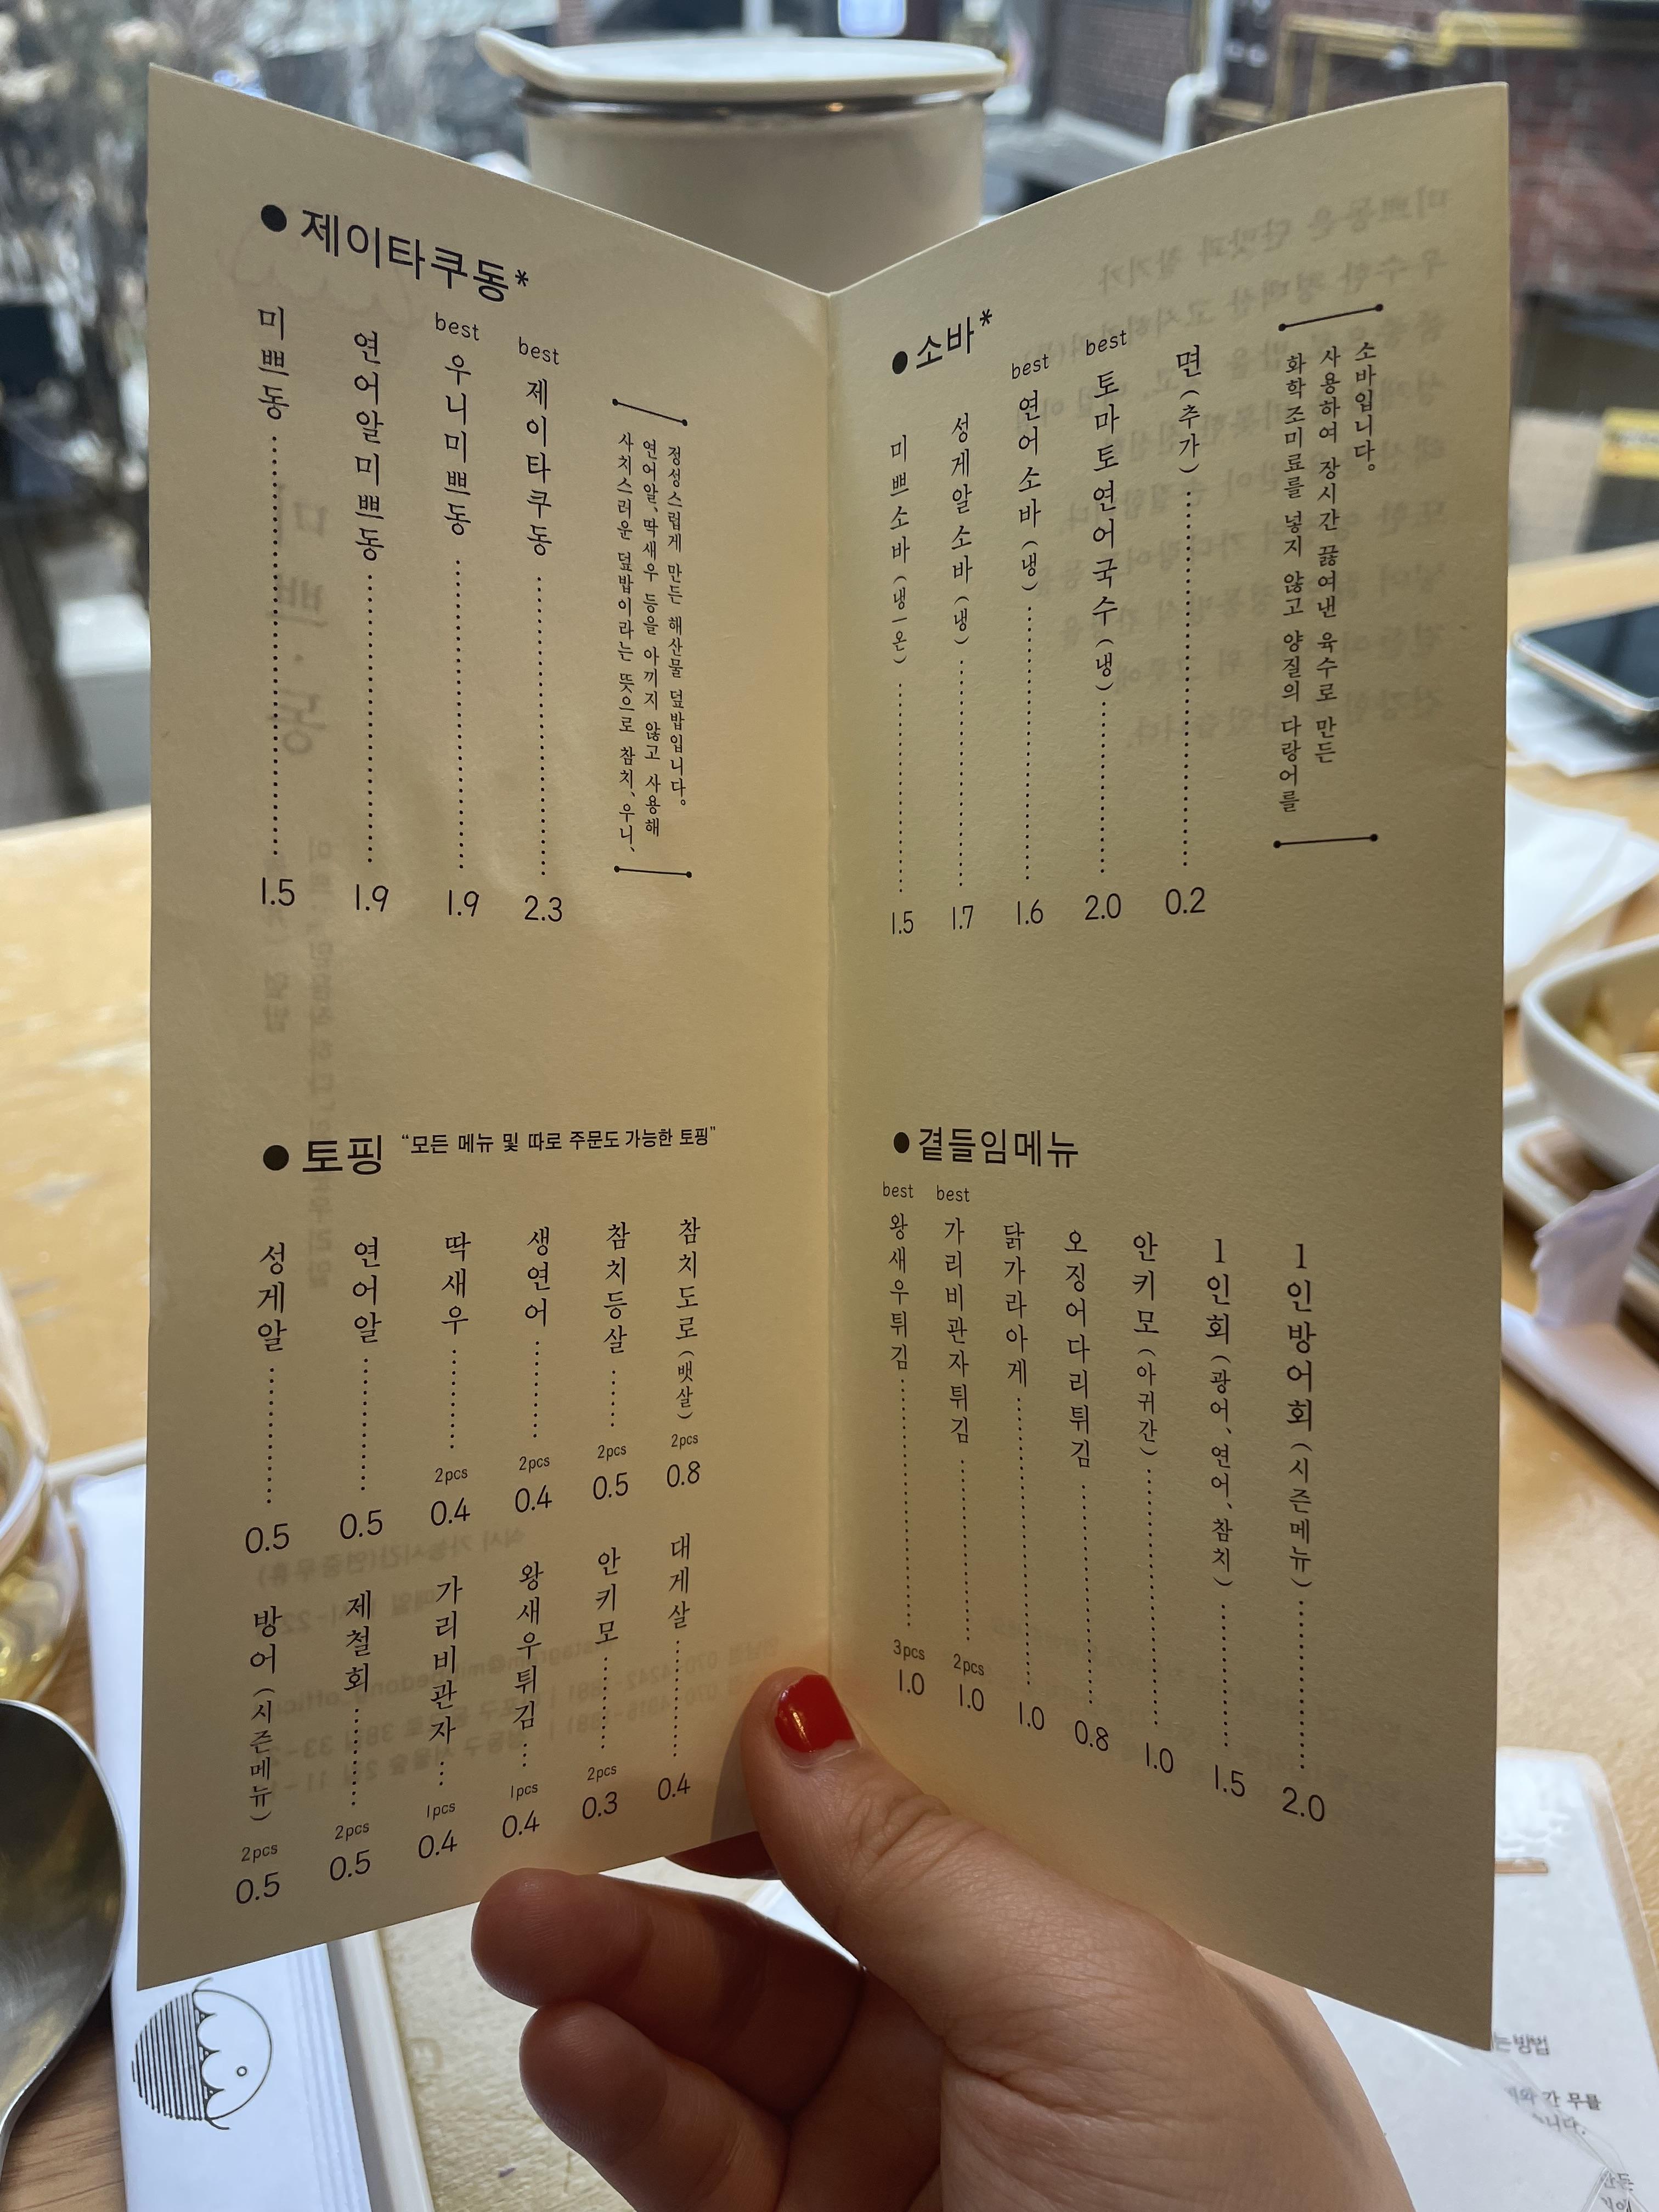 ● 제이타쿠동*
미쁘동 1.5
연어알미쁘동 1.9
best 우니미쁘동 1.9
best 제이타쿠동 2.3
사치스러운 덮밥이라는 뜻으로 참치, 우니,
연어알, 딱새우 등을 아끼지 않고 사용해
정성스럽게 만든 해산물 덮밥입니다.
● 소바*
미쁘소바 (냉–온) 1.5
성게알소바 (냉) 1.7
best 연어소바 (냉) 1.6
best 토마토연어국수 (냉) 2.0
면 (추가) 0.2
화학조미료를 넣지 않고 양질의 다랑어를
사용하여 장시간 끓여낸 육수로 만든
소바입니다.
● 토핑 “모든 메뉴 및 따로 주문도 가능한 토핑”
성게알 0.5
연어알 0.5
딱새우 2pcs 0.4
생연어 2pcs 0.4
참치등살 2pcs 0.5
참치도로 (뱃살) 2pcs 0.8
방어 (시즌메뉴) 2pcs 0.5
제철회 2pcs 0.5
가리비관자 1pcs 0.4
왕새우튀김 1pcs 0.4
안키모 2pcs 0.3
대게살 0.4
● 곁들임메뉴
best 왕새우튀김 3pcs 1.0
best 가리비관자튀김 2pcs 1.0
닭가라아게 1.0
오징어다리튀김 0.8
안키모 (아귀간) 1.0
1인회 (광어, 연어, 참치) 1.5
1인방어회 (시즌메뉴) 2.0